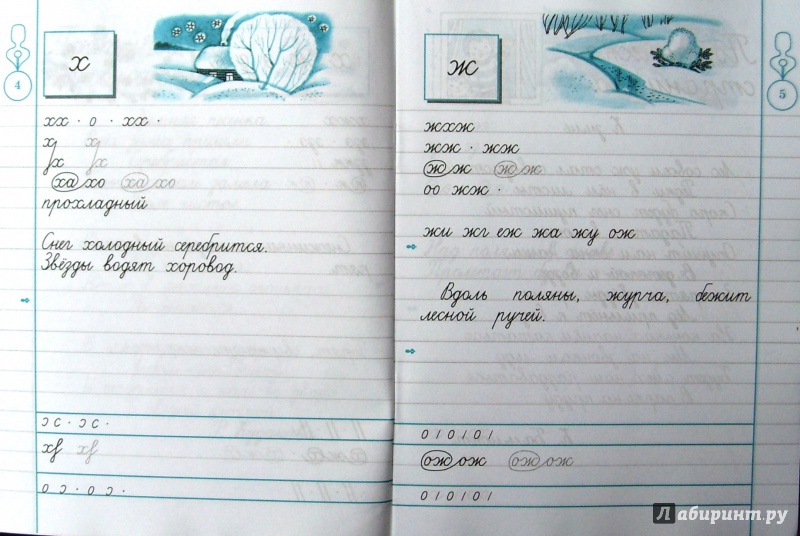 4
х
хх · о · хх ·
х х
х х
ха хо ха хо
прохладный
Снег холодный серебрится.
Звёзды водят хоровод.
ɔ c · ɔ c ·
о ɔ · о ɔ ·
5
ж
жхж
жж · жж
жж жж
оо жж ·
жи жг еж жа жу ож
Вдоль поляны, журча, бежит
лесной ручей.
о / о / о /
ож ож ож ож
о / о / о /
Лабиринт.ру